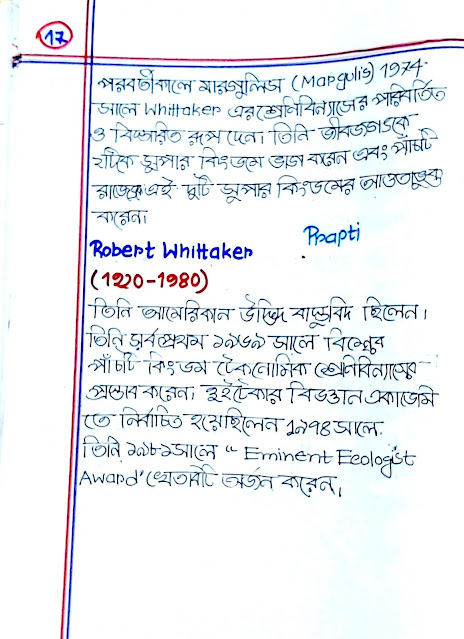 17
পরবর্তীকালে মারগুলিস (Margulis) 1974
সালে Whittaker এর শ্রেণিবিন্যাসের পরিবর্তিত
ও বিস্তারিত রূপ দেন। তিনি জীবজগতকে
২টিকে সুপার কিংডমে ভাগ করেন এবং পাঁচটি
রাজ্যকে এই দুটি সুপার কিংডমের আওতাভুক্ত
করেন।
Prapti
Robert Whittaker
(1920-1980)
তিনি আমেরিকান উদ্ভিদ বাস্তুবিদ ছিলেন।
তিনি সর্বপ্রথম ১৯৬৯ সালে বিশ্বের
পাঁচটি কিংডম টেকনোমিক শ্রেণিবিন্যাসের
প্রস্তাব করেন। হুইটেকার বিজ্ঞান একাডেমি
তে নির্বাচিত হয়েছিলেন ১৯৭৪ সালে.
তিনি ১৯৮১ সালে "Eminent Ecologist
Award" খেতাবটি অর্জন করেন।